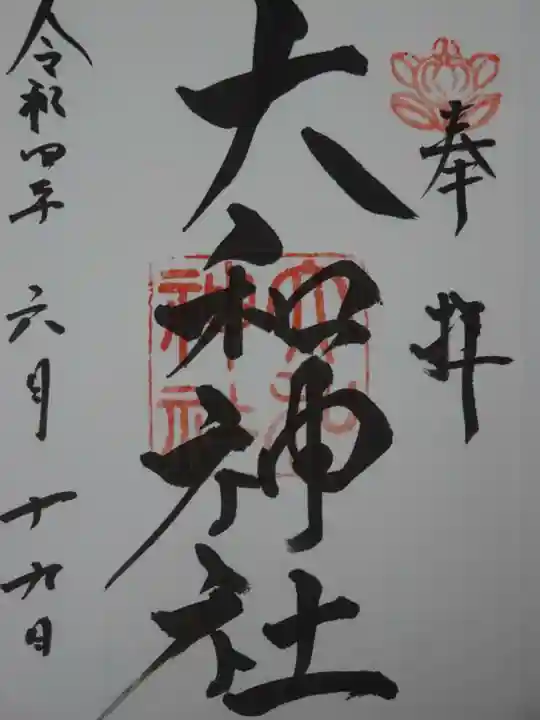 奉拝
大和神社
令和四年 六月 十九日
大和
神社